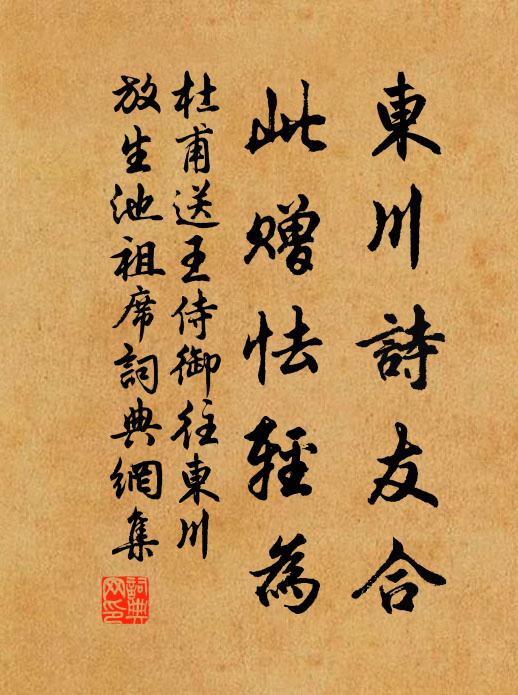 東川詩友合
此贈怯輕為
杜甫送王侍御往東川
放生池祖席詞典網集
詞典網印